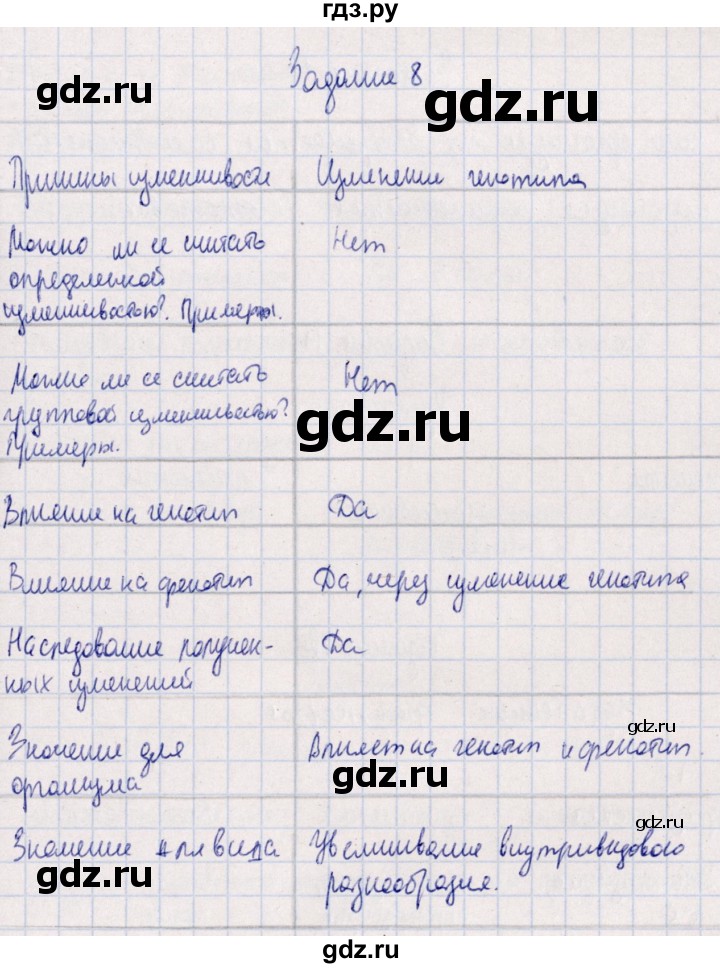 гдз.ру
Задание 8
gdz.ru
gdz.ru
Причины изменчивости Изменение генотипа
Можно ли ее считать Нет.
определенной
изменчивостью? Примеры.
Можно ли ее считать Нет
групповой изменчивостью?
gdz.ru
Примеры.
Влияние на генотип Да
Влияние на фенотип Да, через изменение генотипа
Наследование получен- Да
ных изменений
gdz.ru
Значение для Влияет на генотип и фенотип.
организма
gdz.ru
gdz.ru
Значение для вида Увеличивание внутривидового
разнообразия.
gdz.ru
gdz.ru
gdz.ru